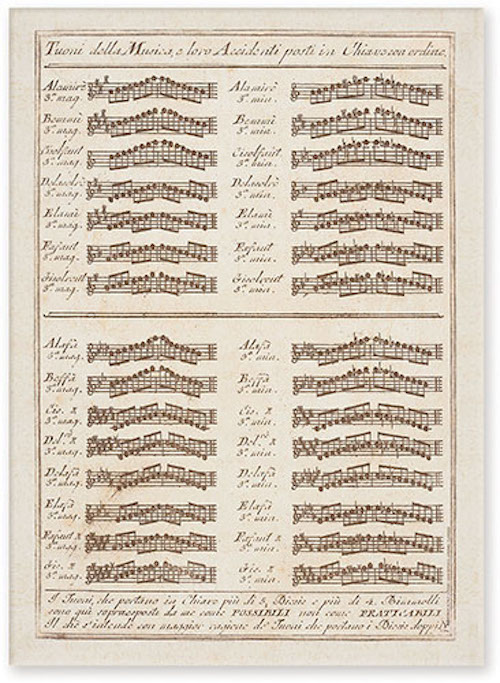 Tuoni della Musica, e loro Accidenti posti in Chiave con ordine.
Alamirè 3.ª mag. Alamirè 3.ª min.
Bemmì 3.ª mag. Bemmì 3.ª min.
Cisolfaut 3.ª mag. Cisolfaut 3.ª min.
Delasolrè 3.ª mag. Delasolrè 3.ª min.
Elamì 3.ª mag. Elamì 3.ª min.
Effaut 3.ª mag. Effaut 3.ª min.
Gisolreut 3.ª mag. Gisolreut 3.ª min.
Alafà 3.ª mag. Alafà 3.ª min.
Beffà 3.ª mag. Beffà 3.ª min.
Cis. 3.ª mag. Cis. 3.ª min.
3.ª mag. 3.ª min.
Delafà 3.ª mag. Delafà 3.ª min.
Elafà 3.ª mag. Elafà 3.ª min.
Effaut 3.ª mag. Effaut 3.ª min.
Gis. 3.ª mag. Gis. 3.ª min.
I Tuoni, che portano in Chiave più di 5. Biesis e più di 4. Bimmolli
sono quì sopraesposti da me come POSSIBILI non come PRATICABILI
Il che s'intende con maggior ragione de' Tuoni che portano i Biesis doppi